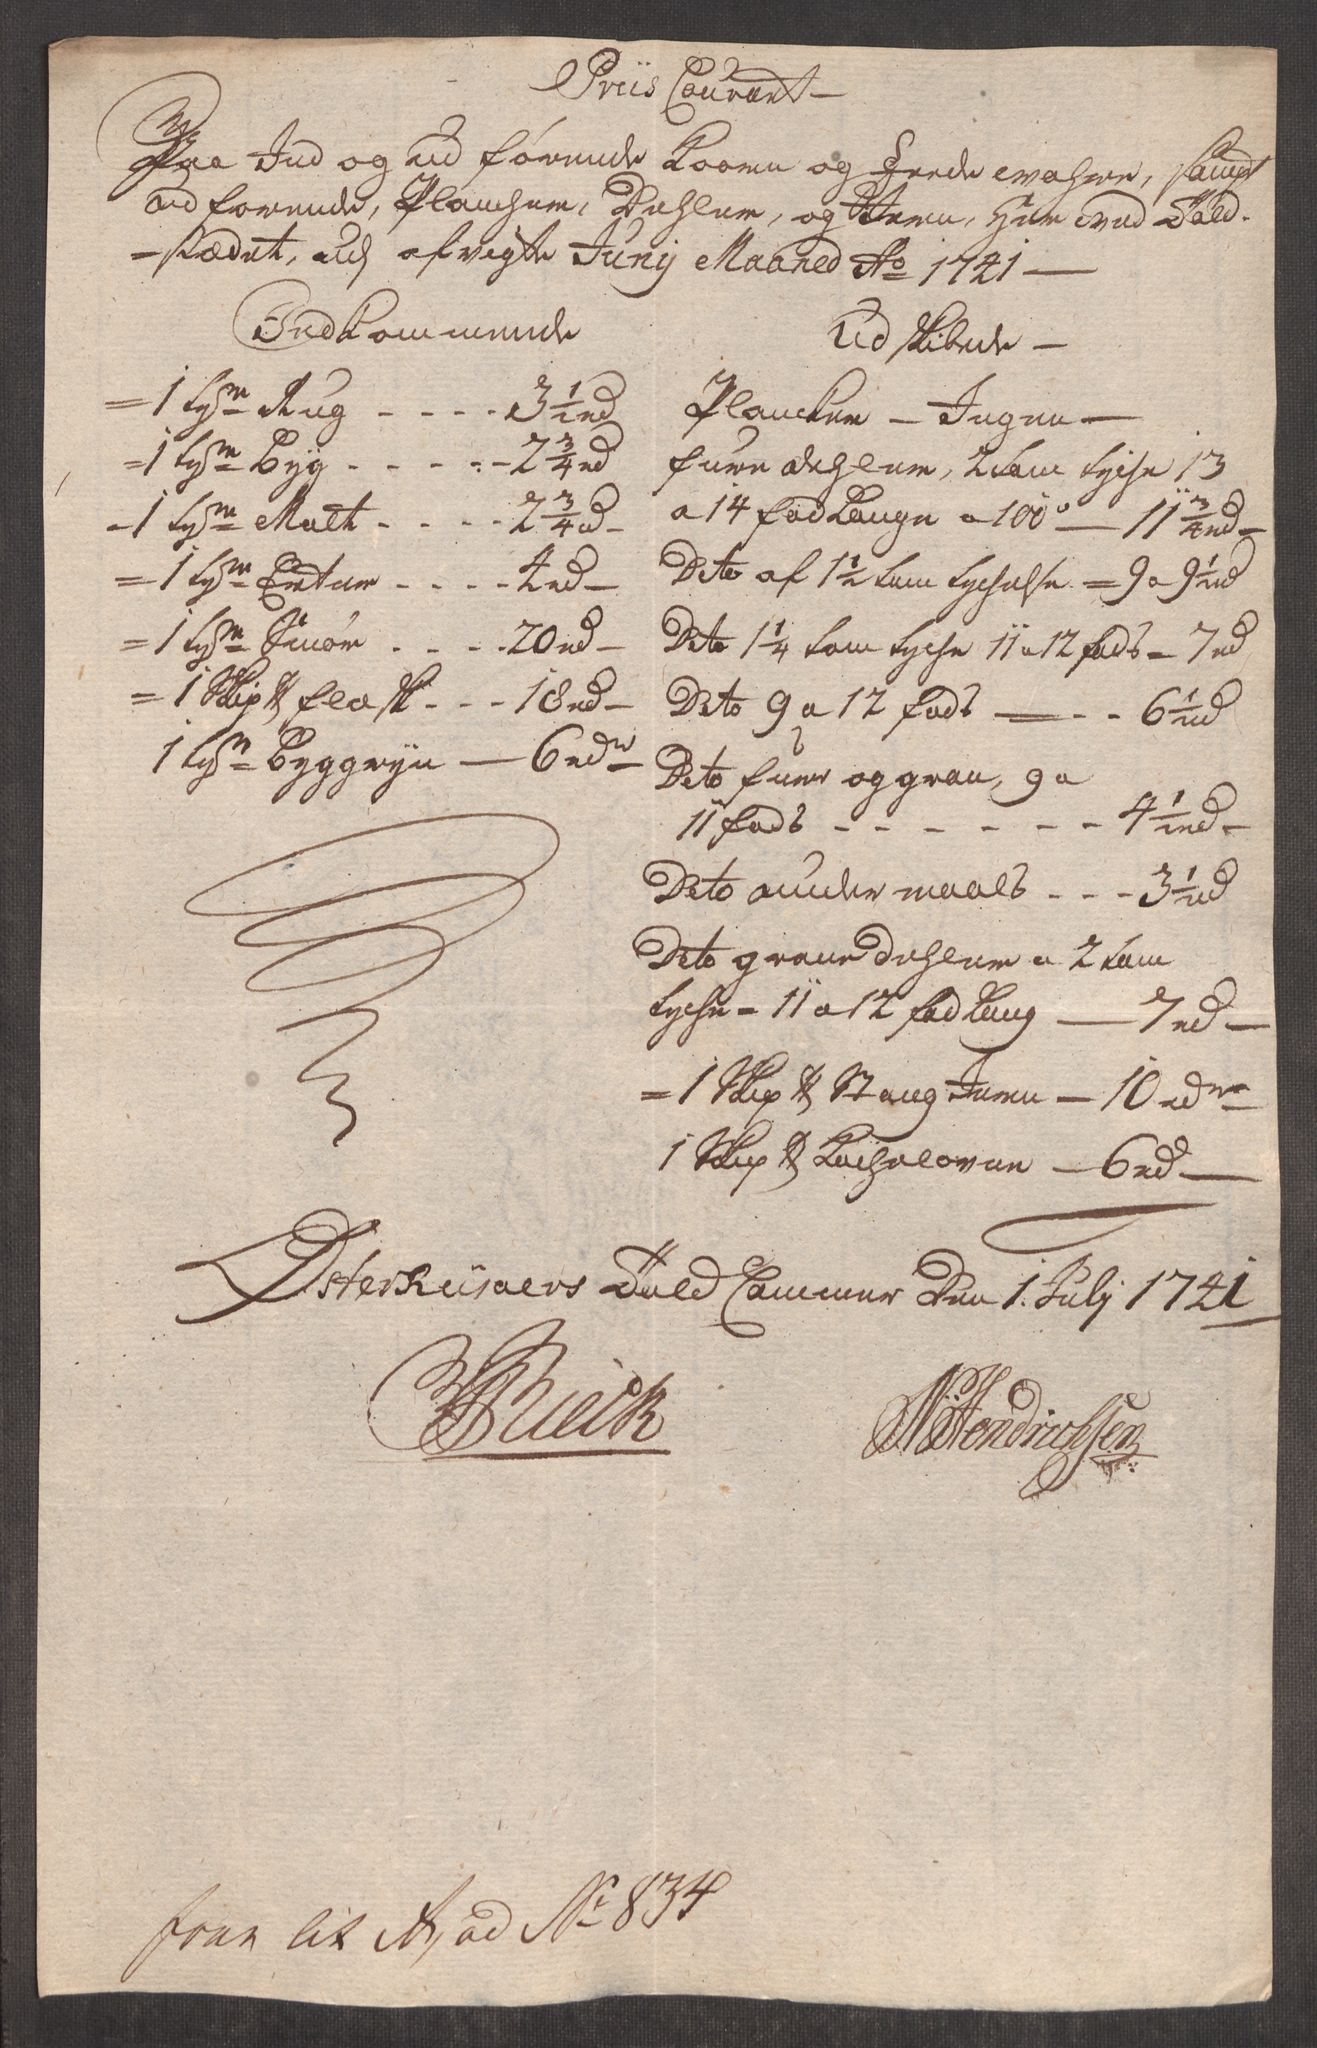 Priis Courant
Paa Ind og Ud førende Koorn og Fede wahre, sampt
udførende, Plancher, Dehler, og Jern, her ved Told-
stædet, udj afvigte Junij Maaned Ao 1741
Indkommende
= 1 tynde Rug - - - - 3 1/2 rd
= 1 tynde Byg - - - - - 2 3/4 rd
- 1 tynde Malt - - - - 2 3/4 rd
= 1 tynde Erter - - - - 4 rd
= 1 tynde Smør - - - - 20 rd
= 1 Skip ℔ flæsk - - - 18 rd
1 tynde byggryn — 6 rdr
Ud skibede
Plancker — Ingen
furu dehler, 2 tom tyche 13
a 14 fod Lange a 100 — 11 3/4 rd
Dito af 1 1/2 tom tychelse = 9 a 9 1/2 rd
Dito 1 1/4 tom tyche 11 a 12 fods - 7 rd
Dito 9 a 12 fods — - - 6 1/2 rd
Dito furu og gran, 9 a
11 fods - - - - - - 4 1/2 rd
Dito under maals - - - 3 1/2 rd
Dito grane Dehler a 2 tom
tyche - 11 a 12 fod Lang — 7 rd
= 1 Skip ℔ Stang Jern — 10 rdr
1 Skip ℔ Kachelovne — 6 rd
Østerriisøers Told Cammer Den 1. Julij 1741
Rieck
N Hendrichsen
fran lit A, ad No 834